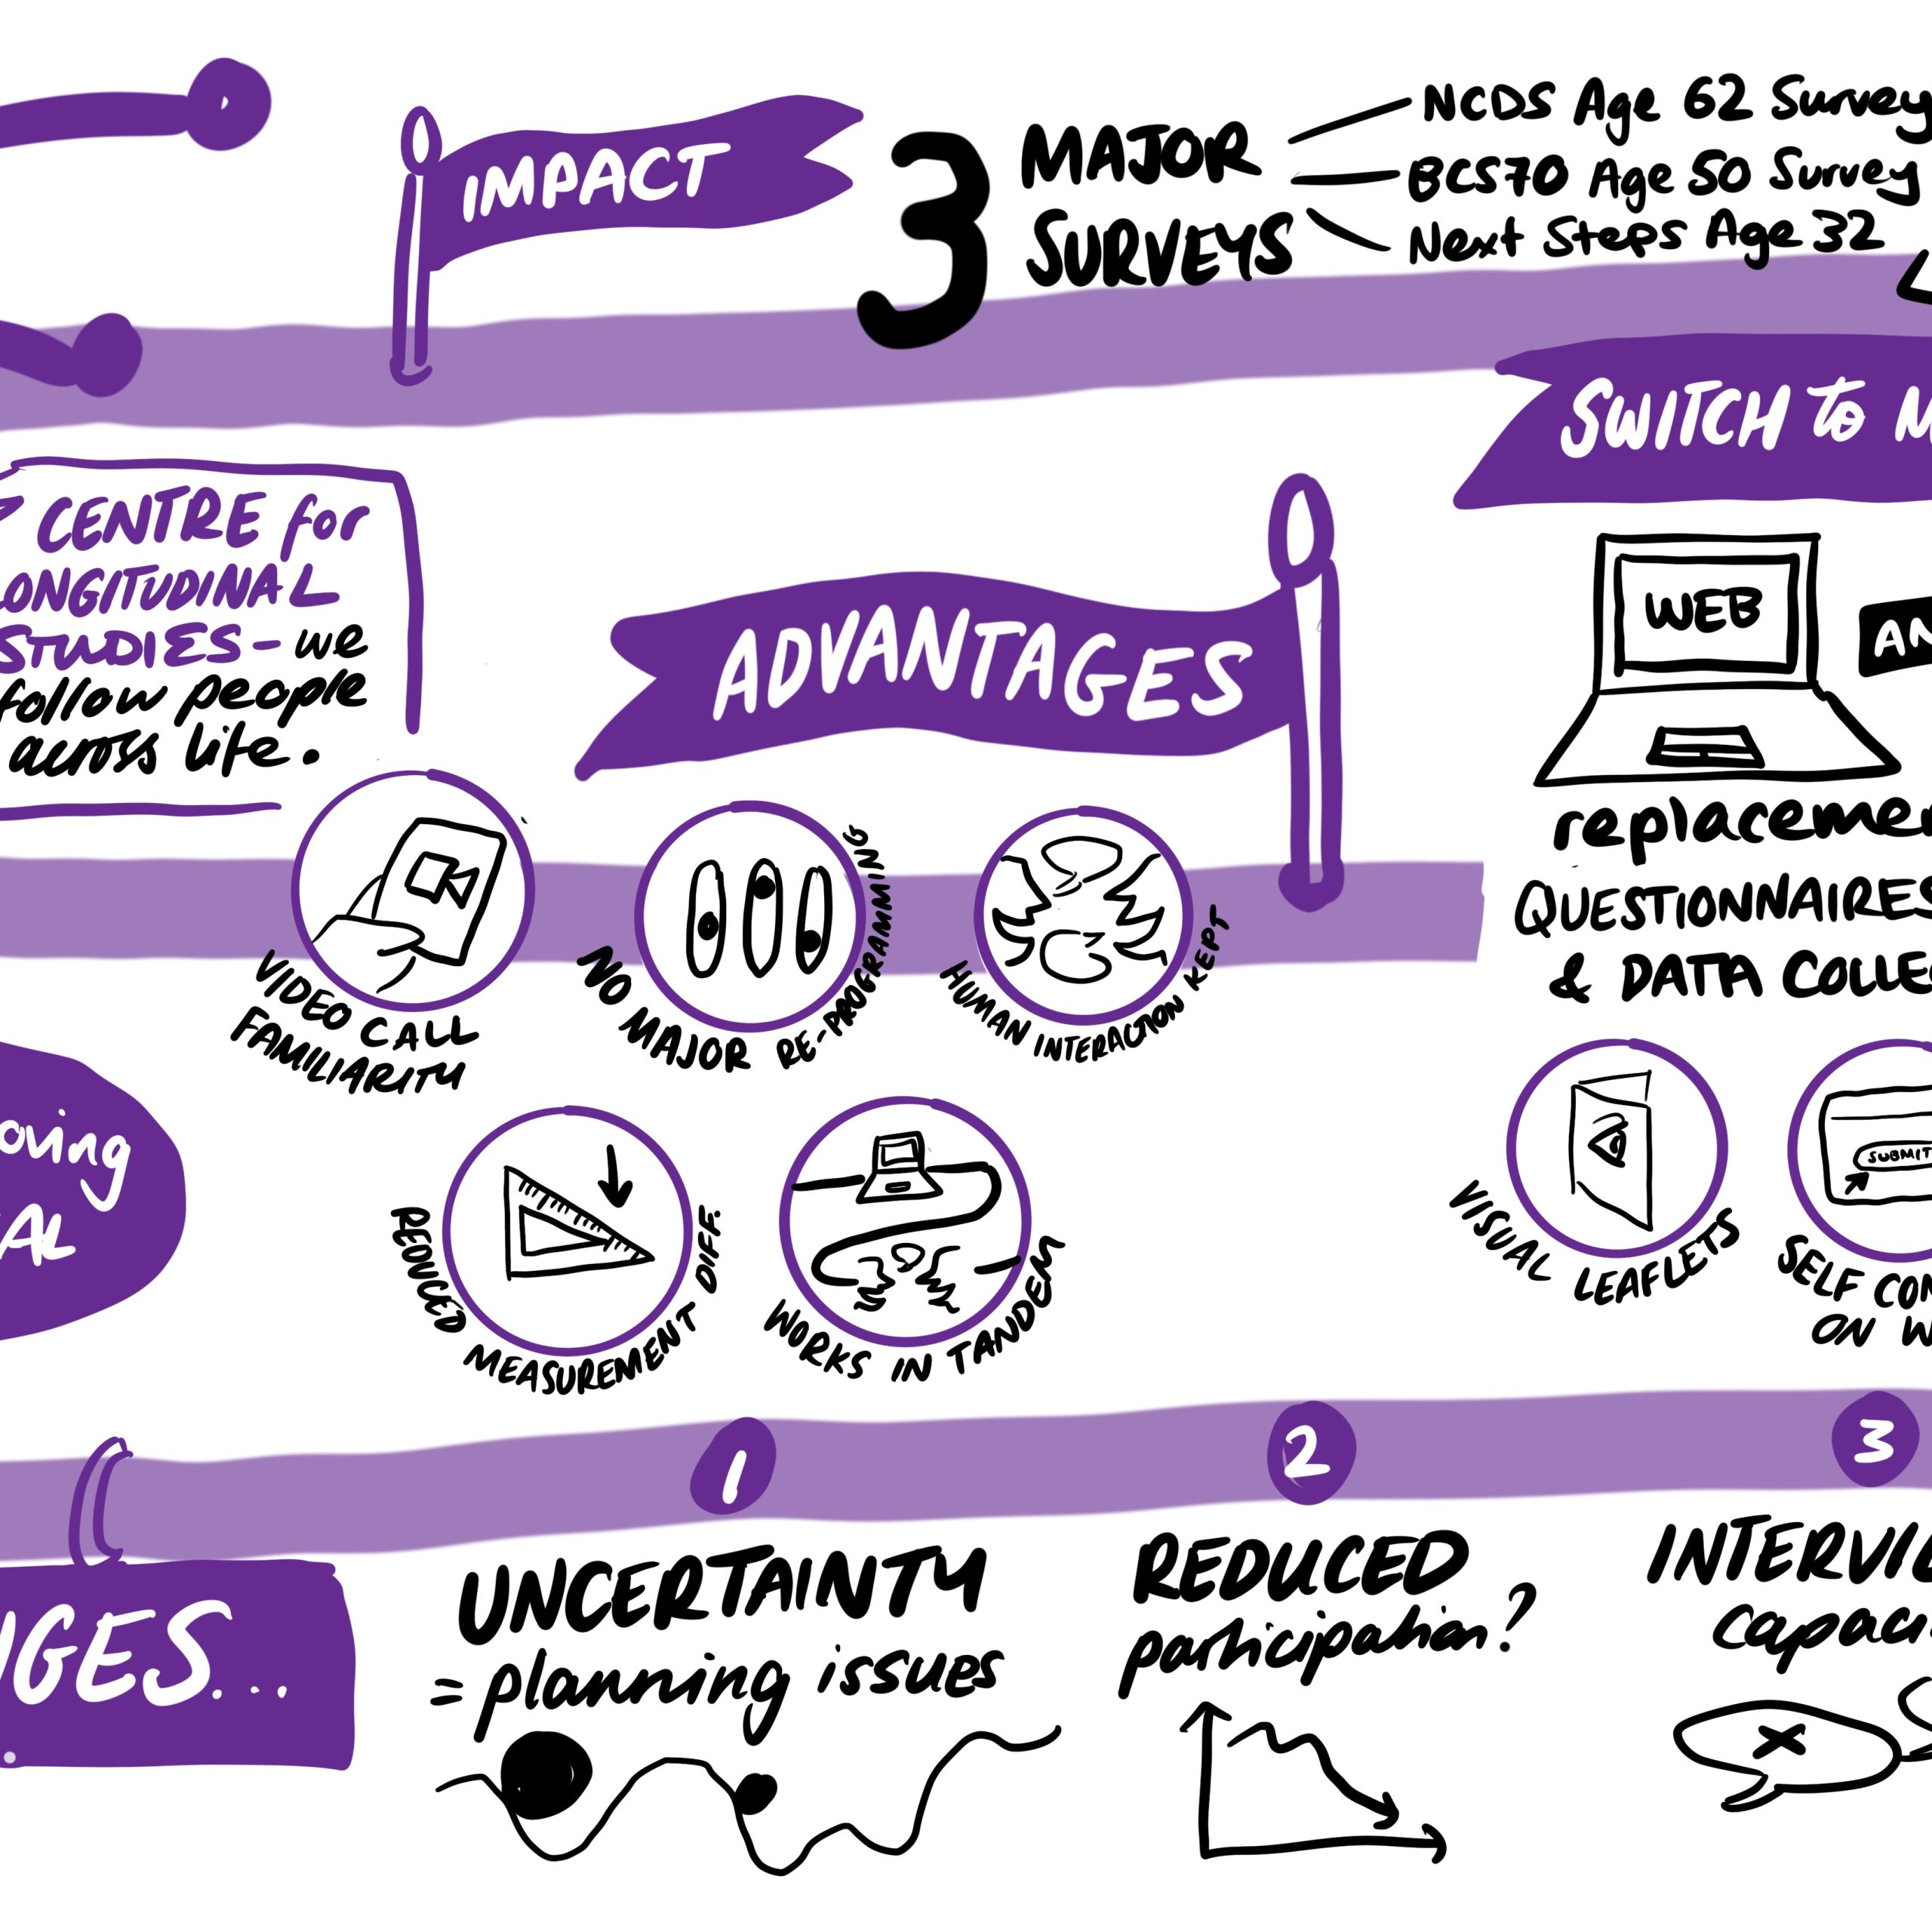 IMPACT
3
MAJOR
SURVEYS
NCDS Age 62 Survey
BCS70 Age 50 Survey
Next Steps Age 32
SWITCH to
CENTRE for
ONGITUDINAL
STUDIES - we
follow people
across life.
ADVANTAGES
WEB
AN
replacemen
QUESTIONNAIRES
& DATA COLLE
VIDEO CALL
FAMILIARITY
NO MAJOR RE-PROGRAMMING
HUMAN INTERACTION KEPT
REDUCED MEASUREMENT DIFF.
WORKS IN TANDEM
VISUAL LEAFLETS
SUBMIT
SELF COM
ON W
oving
AL
GES...
1
UNCERTAINTY
= planning issues
2
REDUCED
participation?
3
INTERVIE
capaci